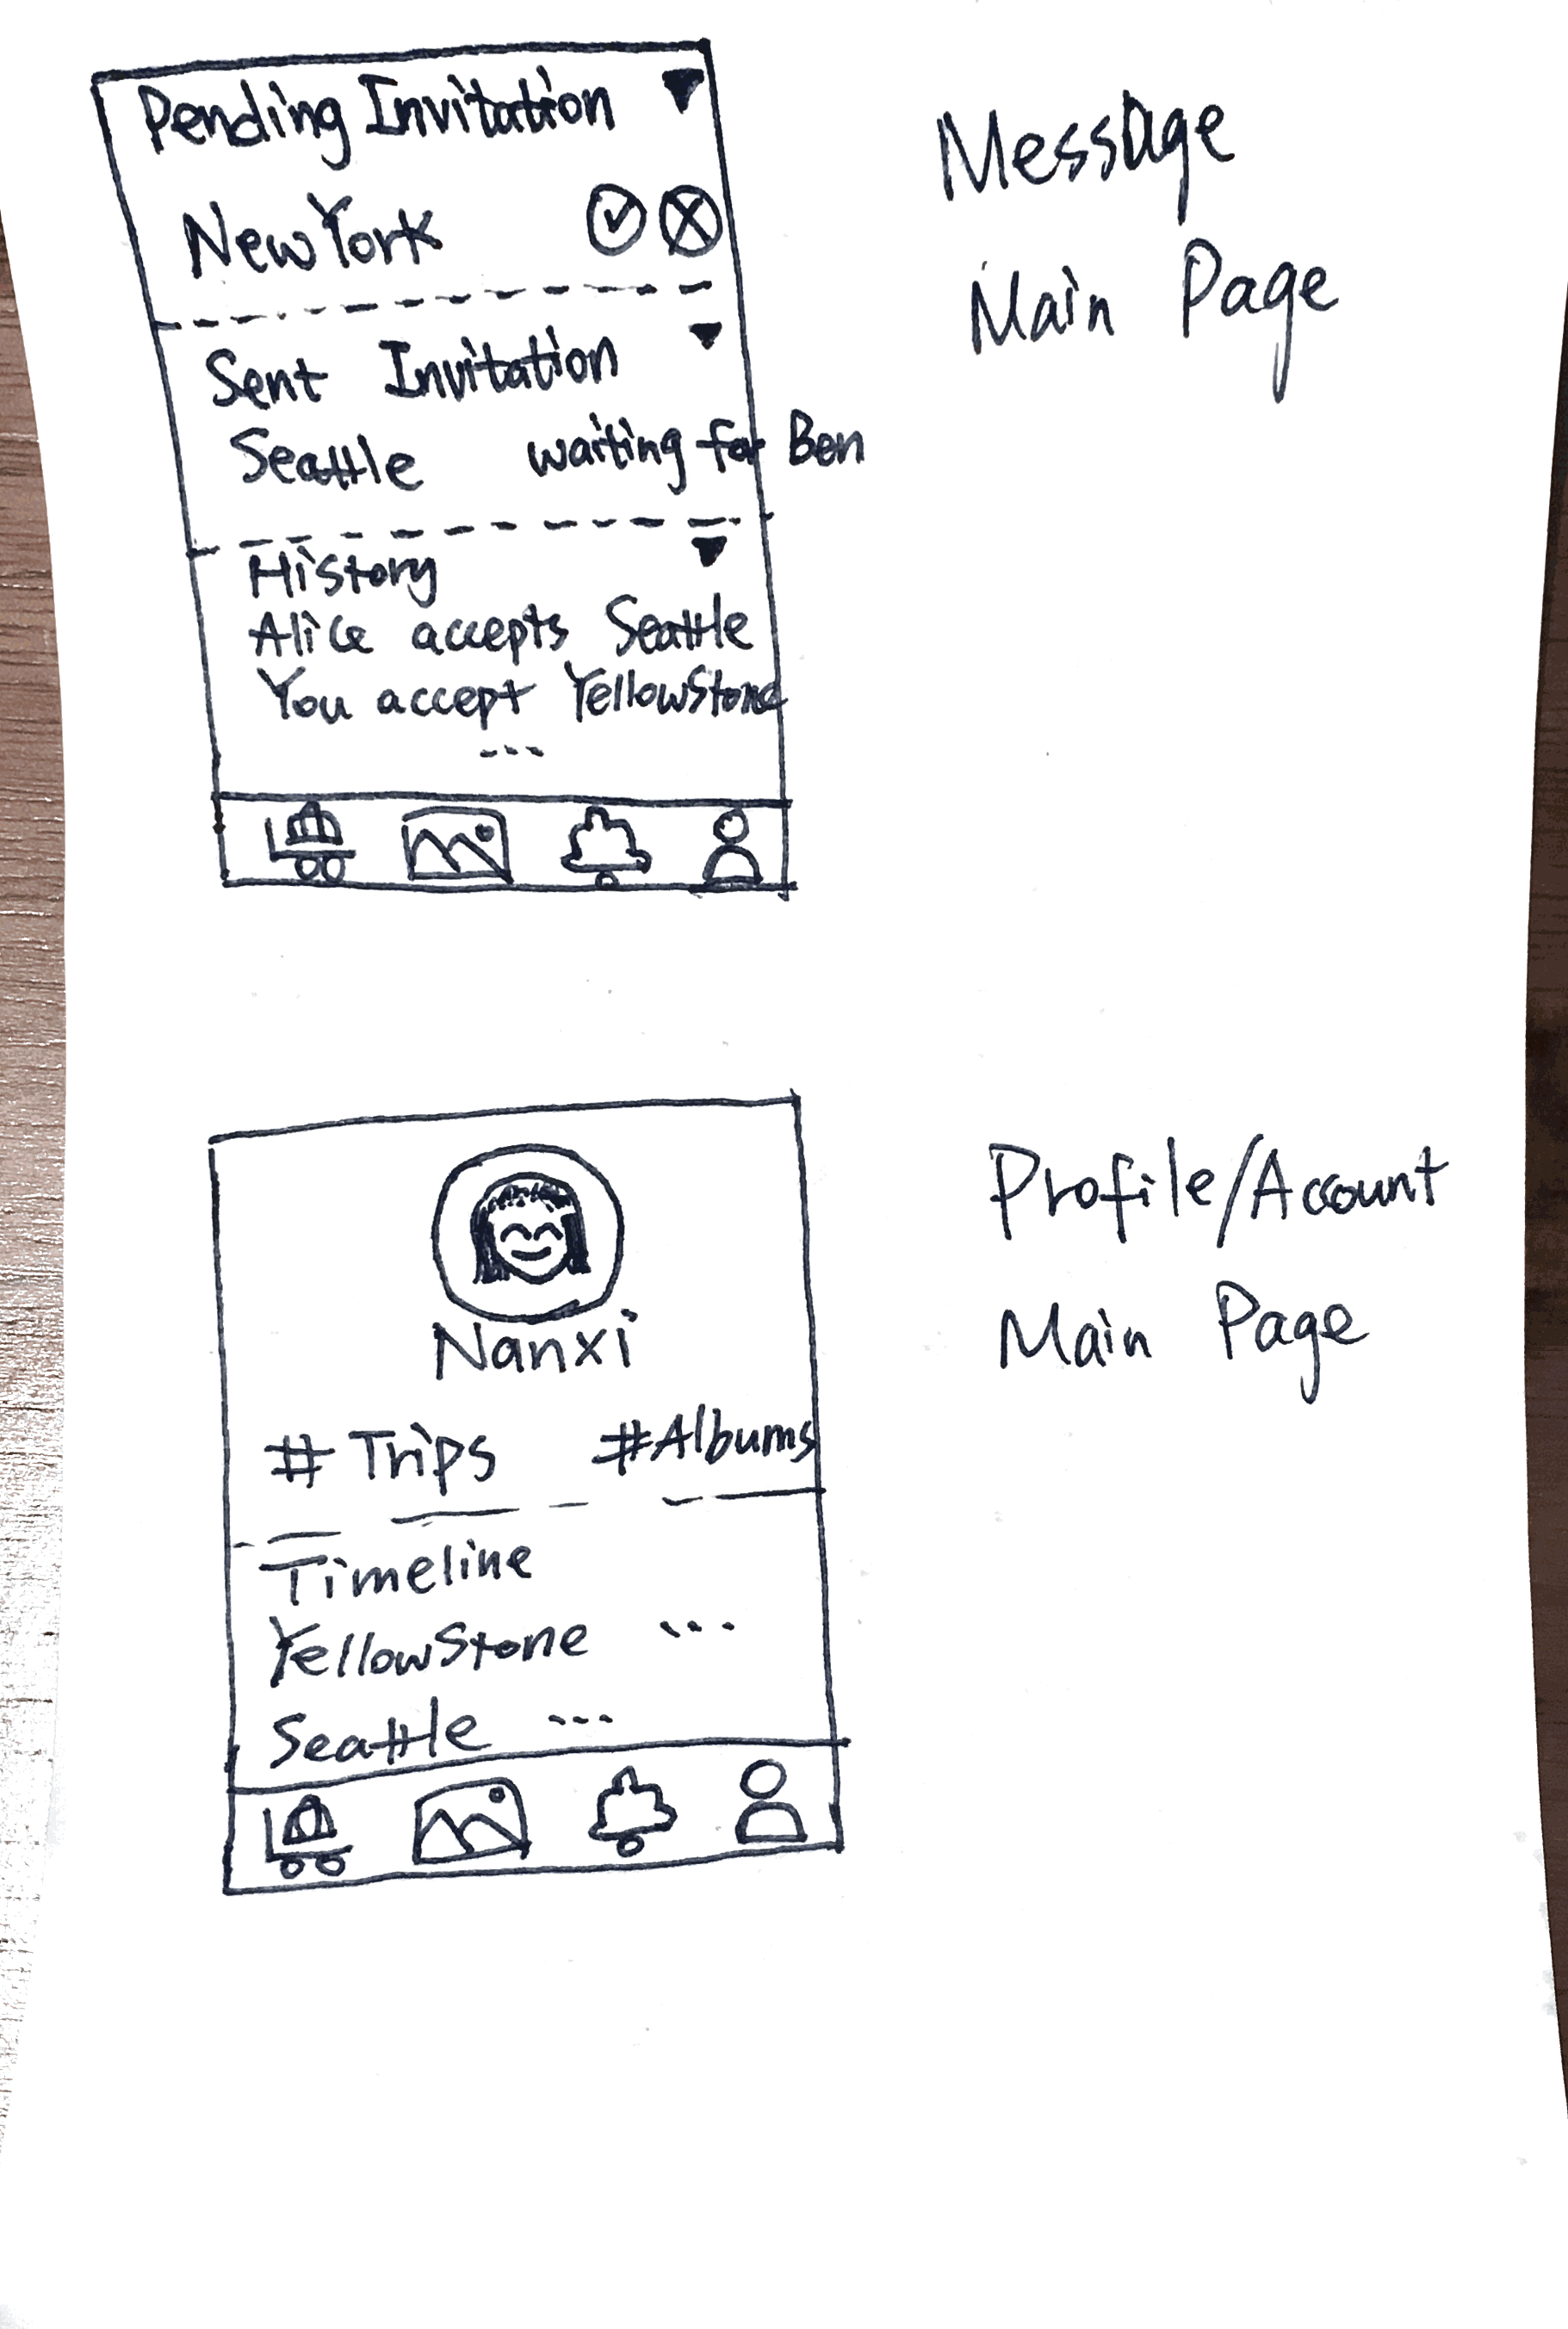 Pending Invitation
New York
Sent Invitation
Seattle waiting for Ben
History
Alice accepts Seattle
You accept YellowStone
---
Message
Main Page
Nanxi
# Trips #Albums
Timeline
YellowStone ---
Seattle ---
Profile/Account
Main Page